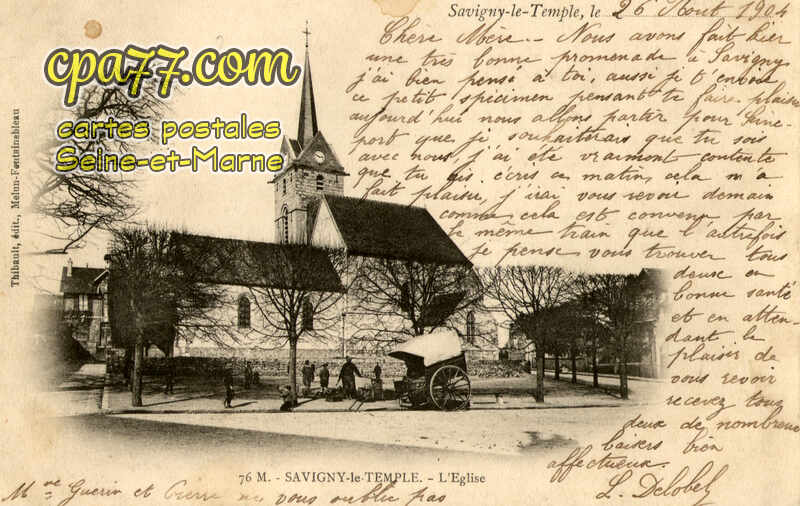 Savigny-le-Temple, le 26 Aout 1904
Chère Mère. - Nous avons fait hier
une très bonne promenade à Savigny
j'ai bien pensé à toi, aussi je t'envoie
ce petit spécimen pensant te faire plaisir
aujourd'hui nous allons partir pour Seine-
port que je souhaiterais que tu sois
avec nous, j'ai été vraiment contente
que tu ais écris ce matin, cela m'a
fait plaisir, j'irai vous revoir demain
comme cela est convenu par
le même train que l'autrefois
je pense vous trouver tous
deux en
bonne santé
et en atten-
dant le
plaisir de
vous revoir
recevez tous
deux de nombreux
baisers bien
affectueux.
L. Delobel
Mme Guerin et Pierre ne vous oublie pas
cpa77.com
cartes postales
Seine-et-Marne
Thibault, édit., Melun-Fontainebleau
76 M. - SAVIGNY-le-TEMPLE. - L'Eglise